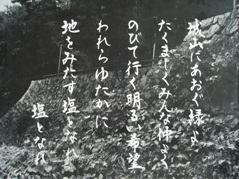 城山にあおぐ緑よ
たくましくみんな仲よく
のびて行く明るい希望
われらゆたかに
地をみたす塩となれ
塩となれ